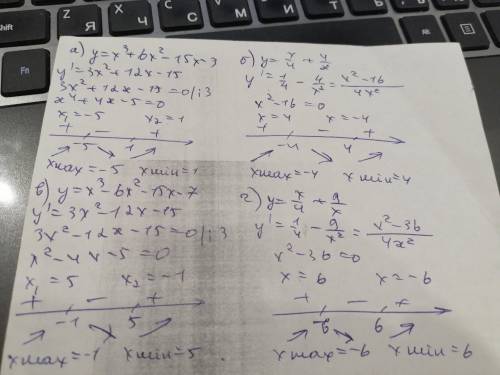 Shift
Fn
Я
Ч
С
М
И
Т
Ь
Б
Ю
а) y=x³+6x²-15x-3
y'=3x²+12x-15
3x²+12x-15=0/:3
x⁴+4x-5=0
x₁=-5 x₂=1
+ - +
-5 1
xmax=-5 xmin=1
б) y=x/4+4/x
y'=1/4-4/x²=(x²-16)/(4x²)
x²-16=0
x=4 x=-4
+ - +
-4 4
xmax=-4 xmin=4
в) y=x³-6x²-15x-7
y'=3x²-12x-15
3x²-12x-15=0/:3
x²-4x-5=0
x₁=5 x₂=-1
+ - +
-1 5
xmax=-1 xmin=5
г) y=x/4+9/x
y'=1/4-9/x²=(x²-36)/(4x²)
x²-36=0
x=6 x=-6
+ - +
-6 6
xmax=-6 xmin=6